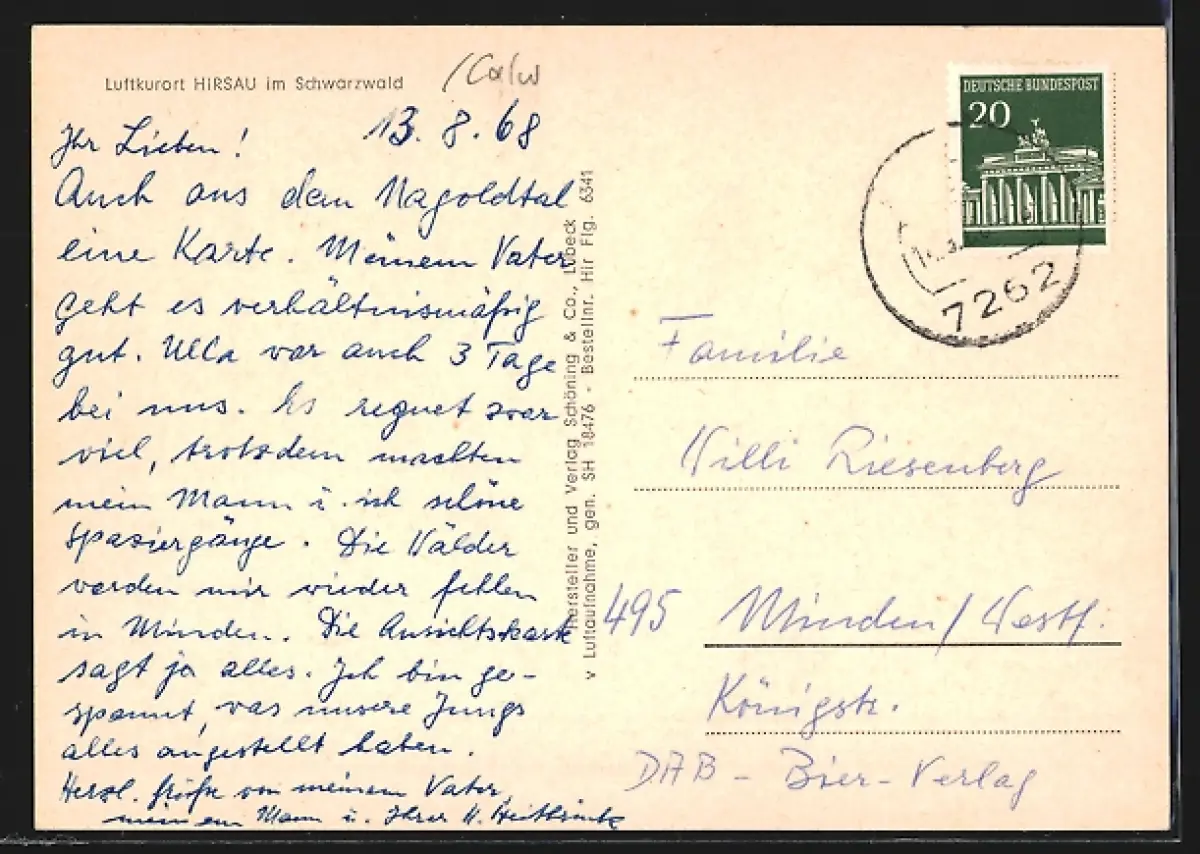 Luftkurort HIRSAU im Schwarzwald
/Calw
13.8.68
Ihr Lieben!
Auch aus dem Nagoldtal
eine Karte. Meinem Vater
geht es verhältnismäßig
gut. Ulla war auch 3 Tage
bei uns. Es regnet zwar
viel, trotzdem machten
mein Mann u. ich schöne
Spaziergänge. Die Wälder
werden mir wieder fehlen
in Minden. Die Ansichtskarte
sagt ja alles. Ich bin ge-
spannt, was unsere Jungs
alles angestellt haben.
Herzl. Grüße von meinem Vater,
meinem Mann u. Ihrer H.
Hersteller und Verlag Schöning & Co., Lübeck
Luftaufnahme, gen. SH 18476 · Bestellnr. Hir Flg. 6341
DEUTSCHE BUNDESPOST
20
7262
Familie
Willi Riesenberg
495 Minden/Westf.
Königstr.
DAB - Bier-Verlag